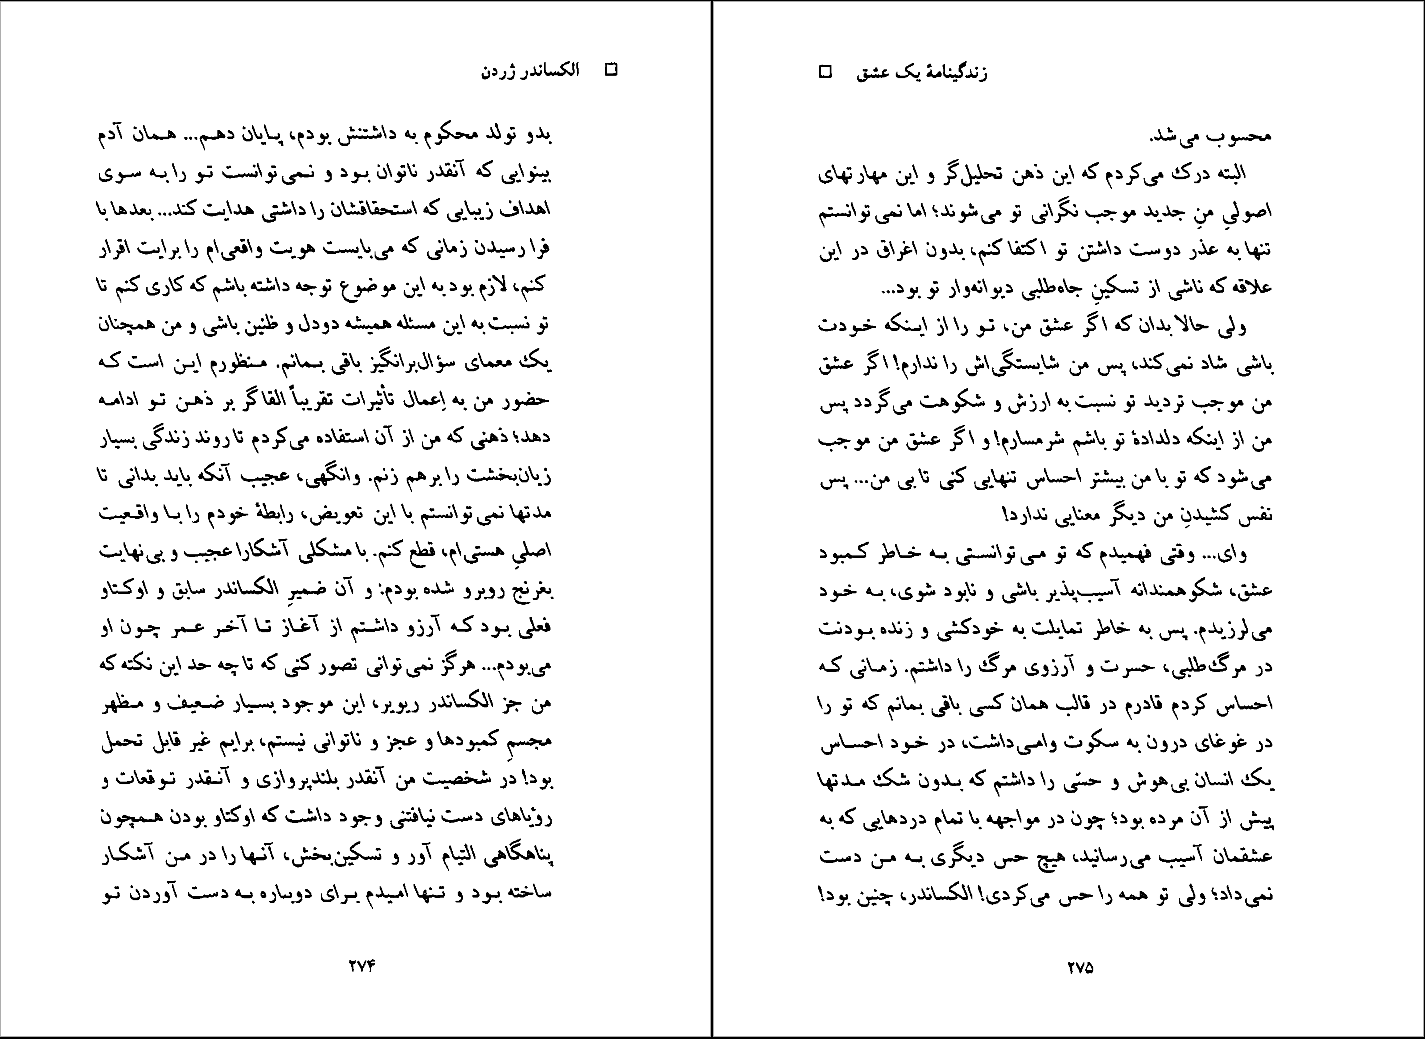 □ الکساندر ژردن
بدو تولد محکوم به داشتنش بودم، پایان دهم... همان آدم
بینوایی که آنقدر ناتوان بود و نمی‌توانست تو را به سوی
اهداف زیبایی که استحقاقشان را داشتی هدایت کند... بعدها با
فرا رسیدن زمانی که می‌بایست هویت واقعی‌ام را برایت اقرار
کنم، لازم بود به این موضوع توجه داشته باشم که کاری کنم تا
تو نسبت به این مسئله همیشه دودل و ظنین باشی و من همچنان
یک معمای سؤال‌برانگیز باقی بمانم. منظورم این است که
حضور من به اِعمال تأثیرات تقریباً القاگر بر ذهن تو ادامه
دهد؛ ذهنی که من از آن استفاده می‌کردم تا روند زندگی بسیار
زیان‌بخشت را برهم زنم. وانگهی، عجیب آنکه باید بدانی تا
مدتها نمی‌توانستم با این تعویض، رابطهٔ خودم را با واقعیت
اصلیِ هستی‌ام، قطع کنم. با مشکلی آشکارا عجیب و بی‌نهایت
بغرنج روبرو شده بودم: و آن ضمیرِ الکساندر سابق و اوکتاو
فعلی بود که آرزو داشتم از آغاز تا آخر عمر چون او
می‌بودم... هرگز نمی‌توانی تصور کنی که تا چه حد این نکته که
من جز الکساندر ریویر، این موجود بسیار ضعیف و مظهر
مجسمِ کمبودها و عجز و ناتوانی نیستم، برایم غیر قابل تحمل
بود! در شخصیت من آنقدر بلندپروازی و آنقدر توقعات و
رؤیاهای دست نیافتنی وجود داشت که اوکتاو بودن همچون
پناهگاهی التیام آور و تسکین‌بخش، آنها را در من آشکار
ساخته بود و تنها امیدم برای دوباره به دست آوردن تو
۲۷۴
زندگینامهٔ یک عشق □
محسوب می‌شد.
البته درک می‌کردم که این ذهن تحلیل‌گر و این مهارتهای
اصولیِ منِ جدید موجب نگرانی تو می‌شوند؛ اما نمی‌توانستم
تنها به عذر دوست داشتن تو اکتفا کنم، بدون اغراق در این
علاقه که ناشی از تسکینِ جاه‌طلبی دیوانه‌وار تو بود...
ولی حالا بدان که اگر عشق من، تو را از اینکه خودت
باشی شاد نمی‌کند، پس من شایستگی‌اش را ندارم! اگر عشق
من موجب تردید تو نسبت به ارزش و شکوهت می‌گردد پس
من از اینکه دلدادهٔ تو باشم شرمسارم! و اگر عشق من موجب
می‌شود که تو با من بیشتر احساس تنهایی کنی تا بی من... پس
نفس کشیدنِ من دیگر معنایی ندارد!
وای... وقتی فهمیدم که تو می‌توانستی به خاطر کمبود
عشق، شکوهمندانه آسیب‌پذیر باشی و نابود شوی، به خود
می‌لرزیدم. پس به خاطر تمایلت به خودکشی و زنده بودنت
در مرگ‌طلبی، حسرت و آرزوی مرگ را داشتم. زمانی که
احساس کردم قادرم در قالب همان کسی باقی بمانم که تو را
در غوغای درون به سکوت وامی‌داشت، در خود احساس
یک انسان بی‌هوش و حسّی را داشتم که بدون شک مدتها
پیش از آن مرده بود؛ چون در مواجهه با تمام دردهایی که به
عشقمان آسیب می‌رسانید، هیچ حس دیگری به من دست
نمی‌داد؛ ولی تو همه را حس می‌کردی! الکساندر، چنین بود!
۲۷۵